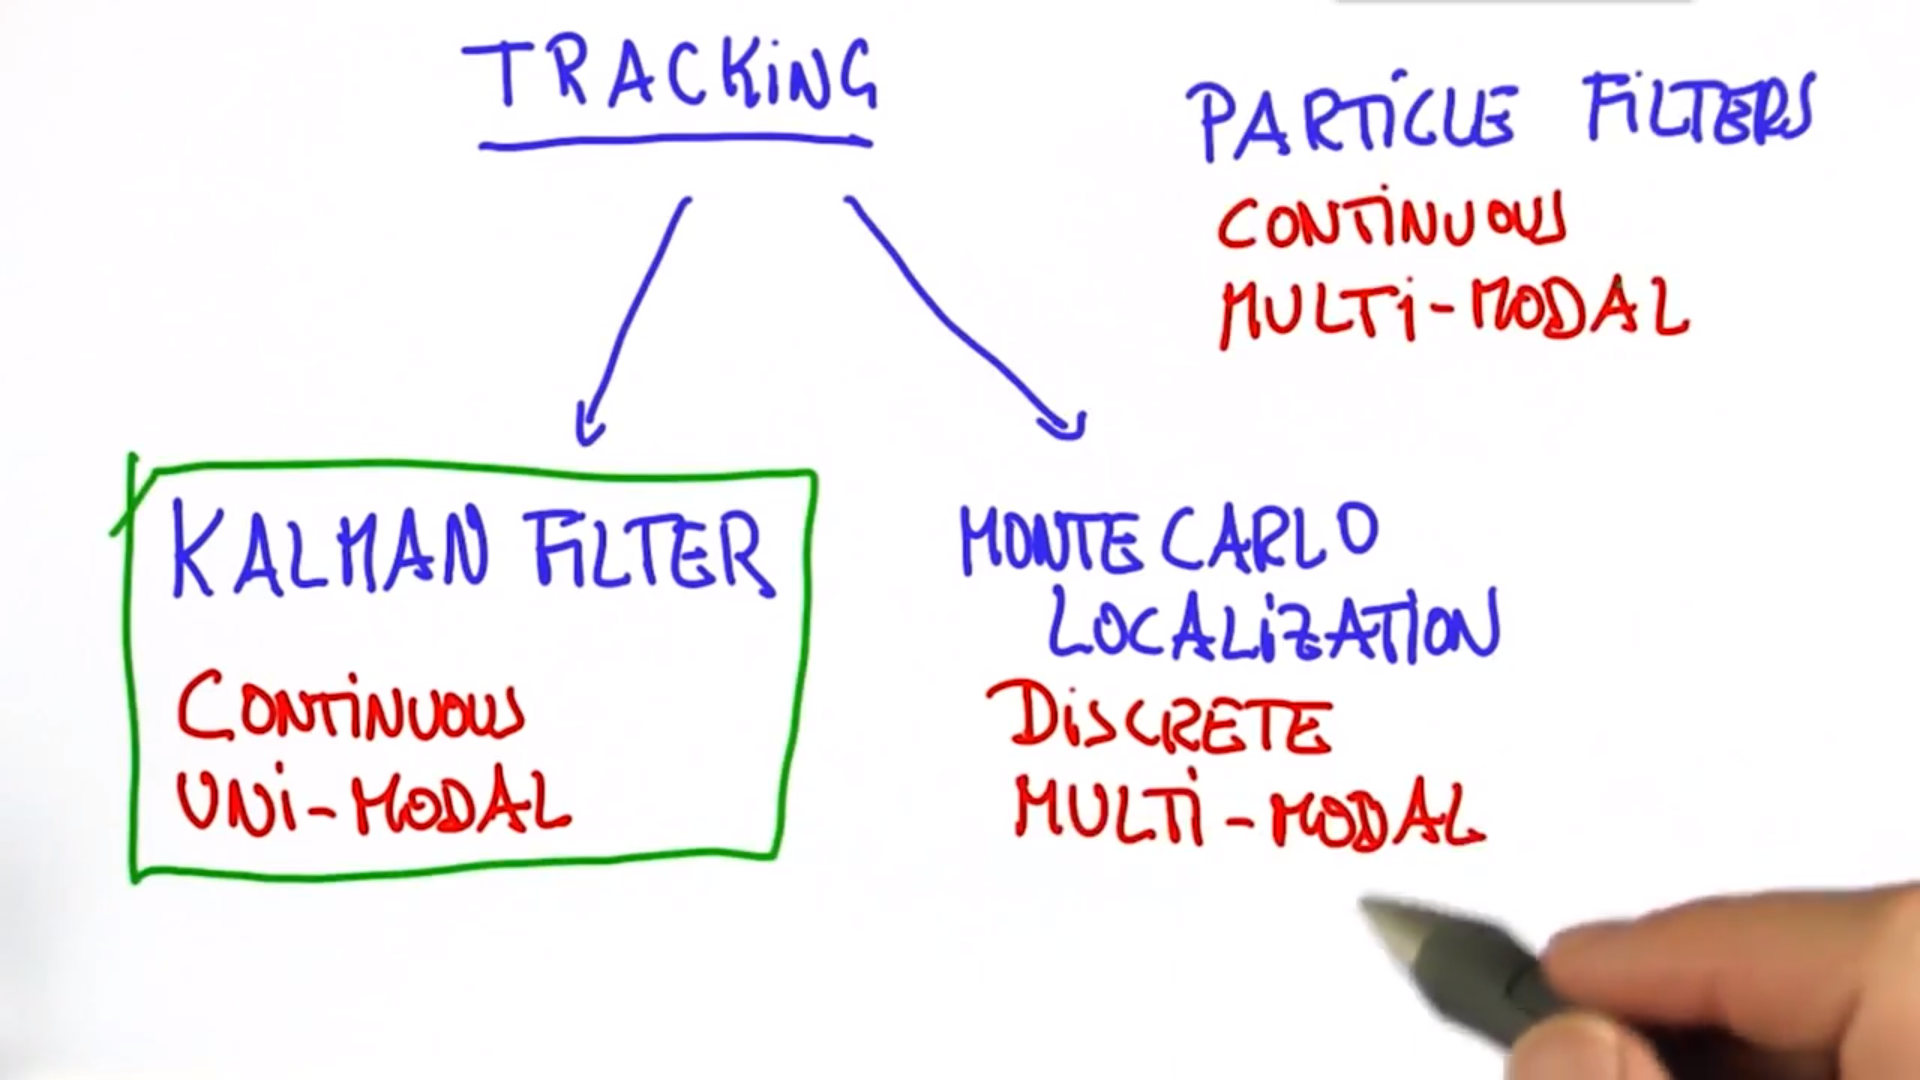 TRACKiNG
PARTiCLE FiLTERS
CONTiNUOUS
MULTi-MODAL
KALMAN FiLTER
CONTiNUOUS
UNi-MODAL
MONTE CARLO
LOCALiZATION
DiSCRETE
MULTi-MODAL